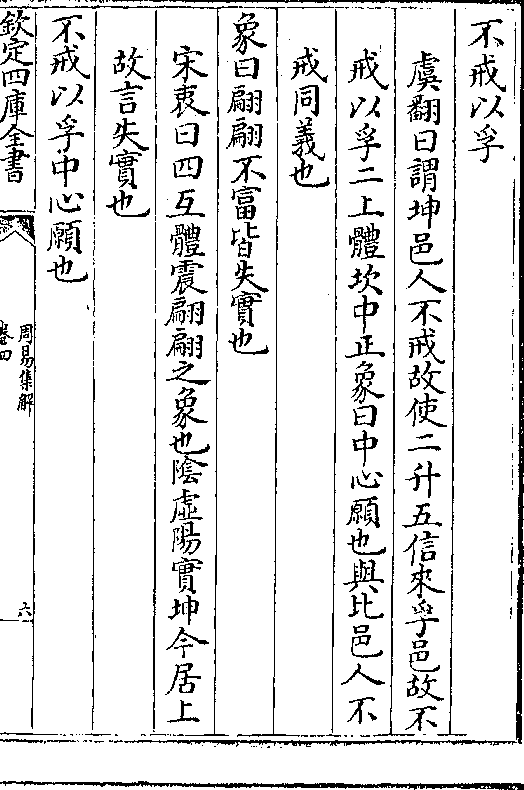 不戒以孚
虞翻曰謂坤邑人不戒故使二升五信來孚邑故不
戒以孚二上體坎中正象曰中心願也與比邑人不
戒同義也
象曰翩翩不富皆失實也
宋衷曰四互體震翩翩之象也陰虛陽實坤今居上
故言失實也
不戒以孚中心願也
欽定四庫全書
周易集解
卷四
六